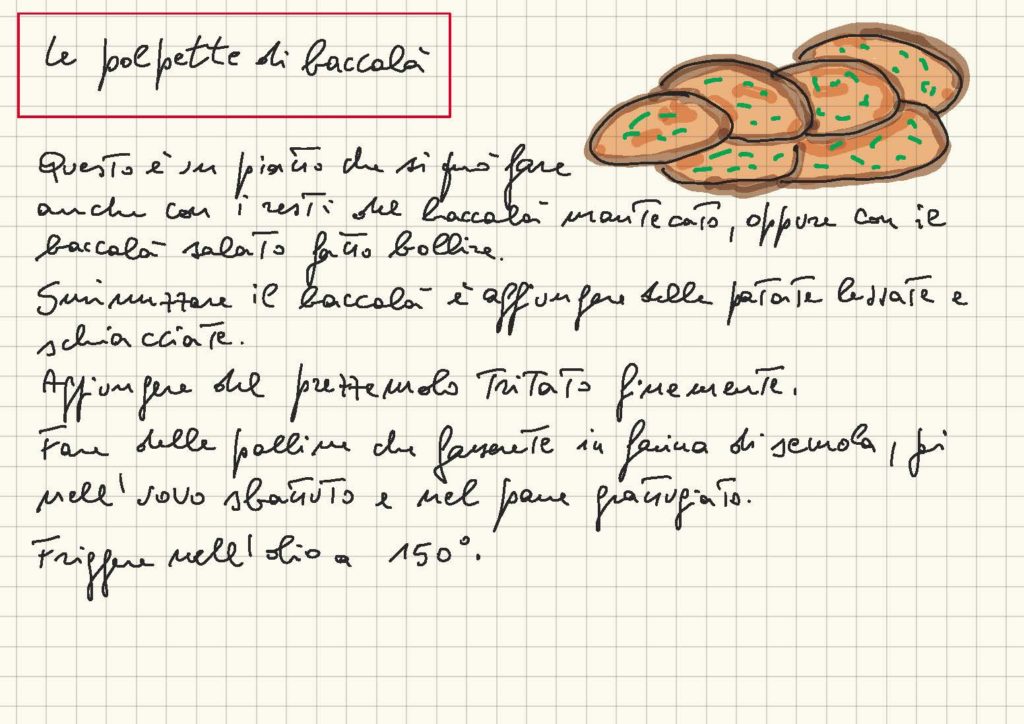 Le polpette di baccalà
Questo è un piatto che si può fare
anche con i resti del baccalà mantecato, oppure con il
baccalà salato fatto bollire.
Sminuzzare il baccalà e aggiungere delle patate lessate e
schiacciate.
Aggiungere del prezzemolo tritato finemente.
Fare delle palline che passerete in farina di semola, poi
nell'uovo sbattuto e nel pane grattugiato.
Friggere nell'olio a 150°.